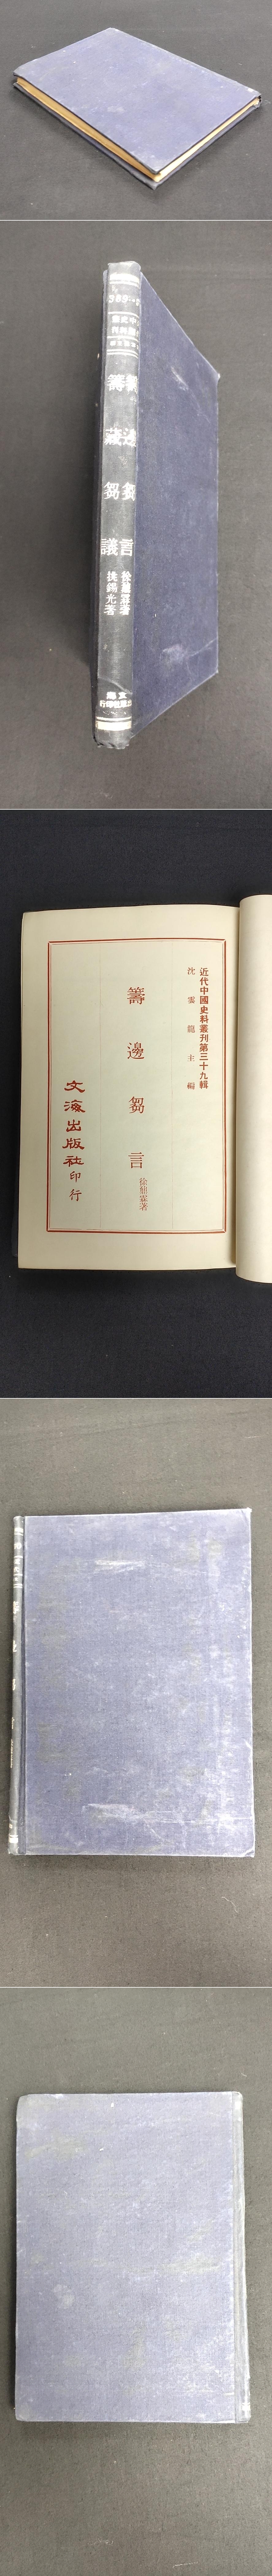 籌邊芻言
籌藏芻議
徐鼐霖著
姚錫光著
近代中國史料叢刊第三十九輯
沈雲龍主編
籌邊芻言
徐鼐霖著
文海出版社印行